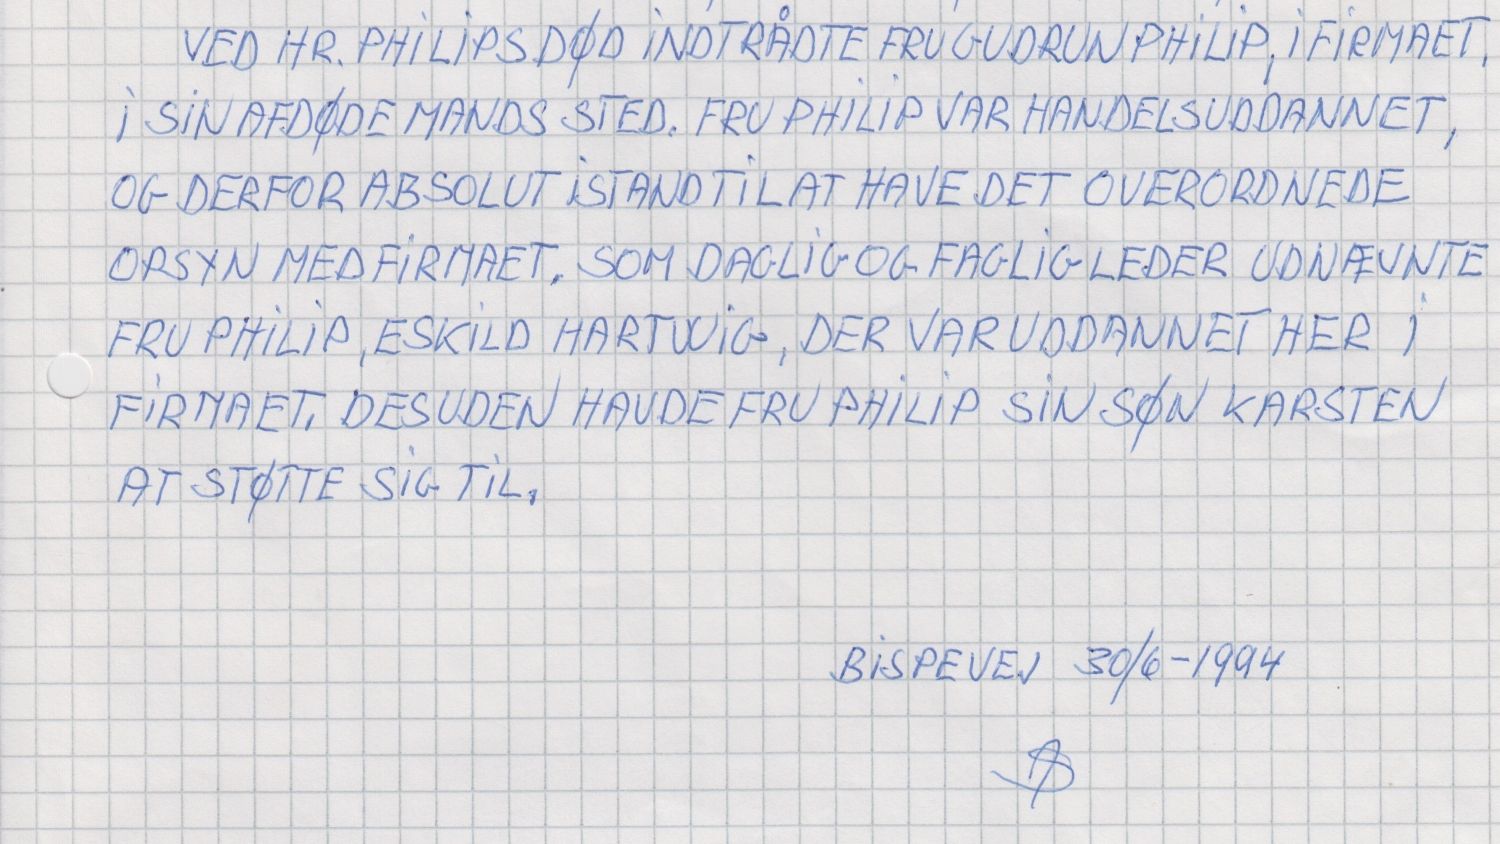 VED HR. PHILIPS DØD INDTRÅDTE FRU GUDRUN PHILIP, I FIRMAET,
I SIN AFDØDE MANDS STED. FRU PHILIP VAR HANDELSUDDANNET,
OG DERFOR ABSOLUT ISTAND TIL AT HAVE DET OVERORDNEDE
OPSYN MED FIRMAET. SOM DAGLIG OG FAGLIG LEDER UDNÆVNTE
FRU PHILIP, ESKILD HARTWIG, DER VAR UDDANNET HER I
FIRMAET. DESUDEN HAVDE FRU PHILIP SIN SØN KARSTEN
AT STØTTE SIG TIL.
BISPEVEJ 30/6-1994